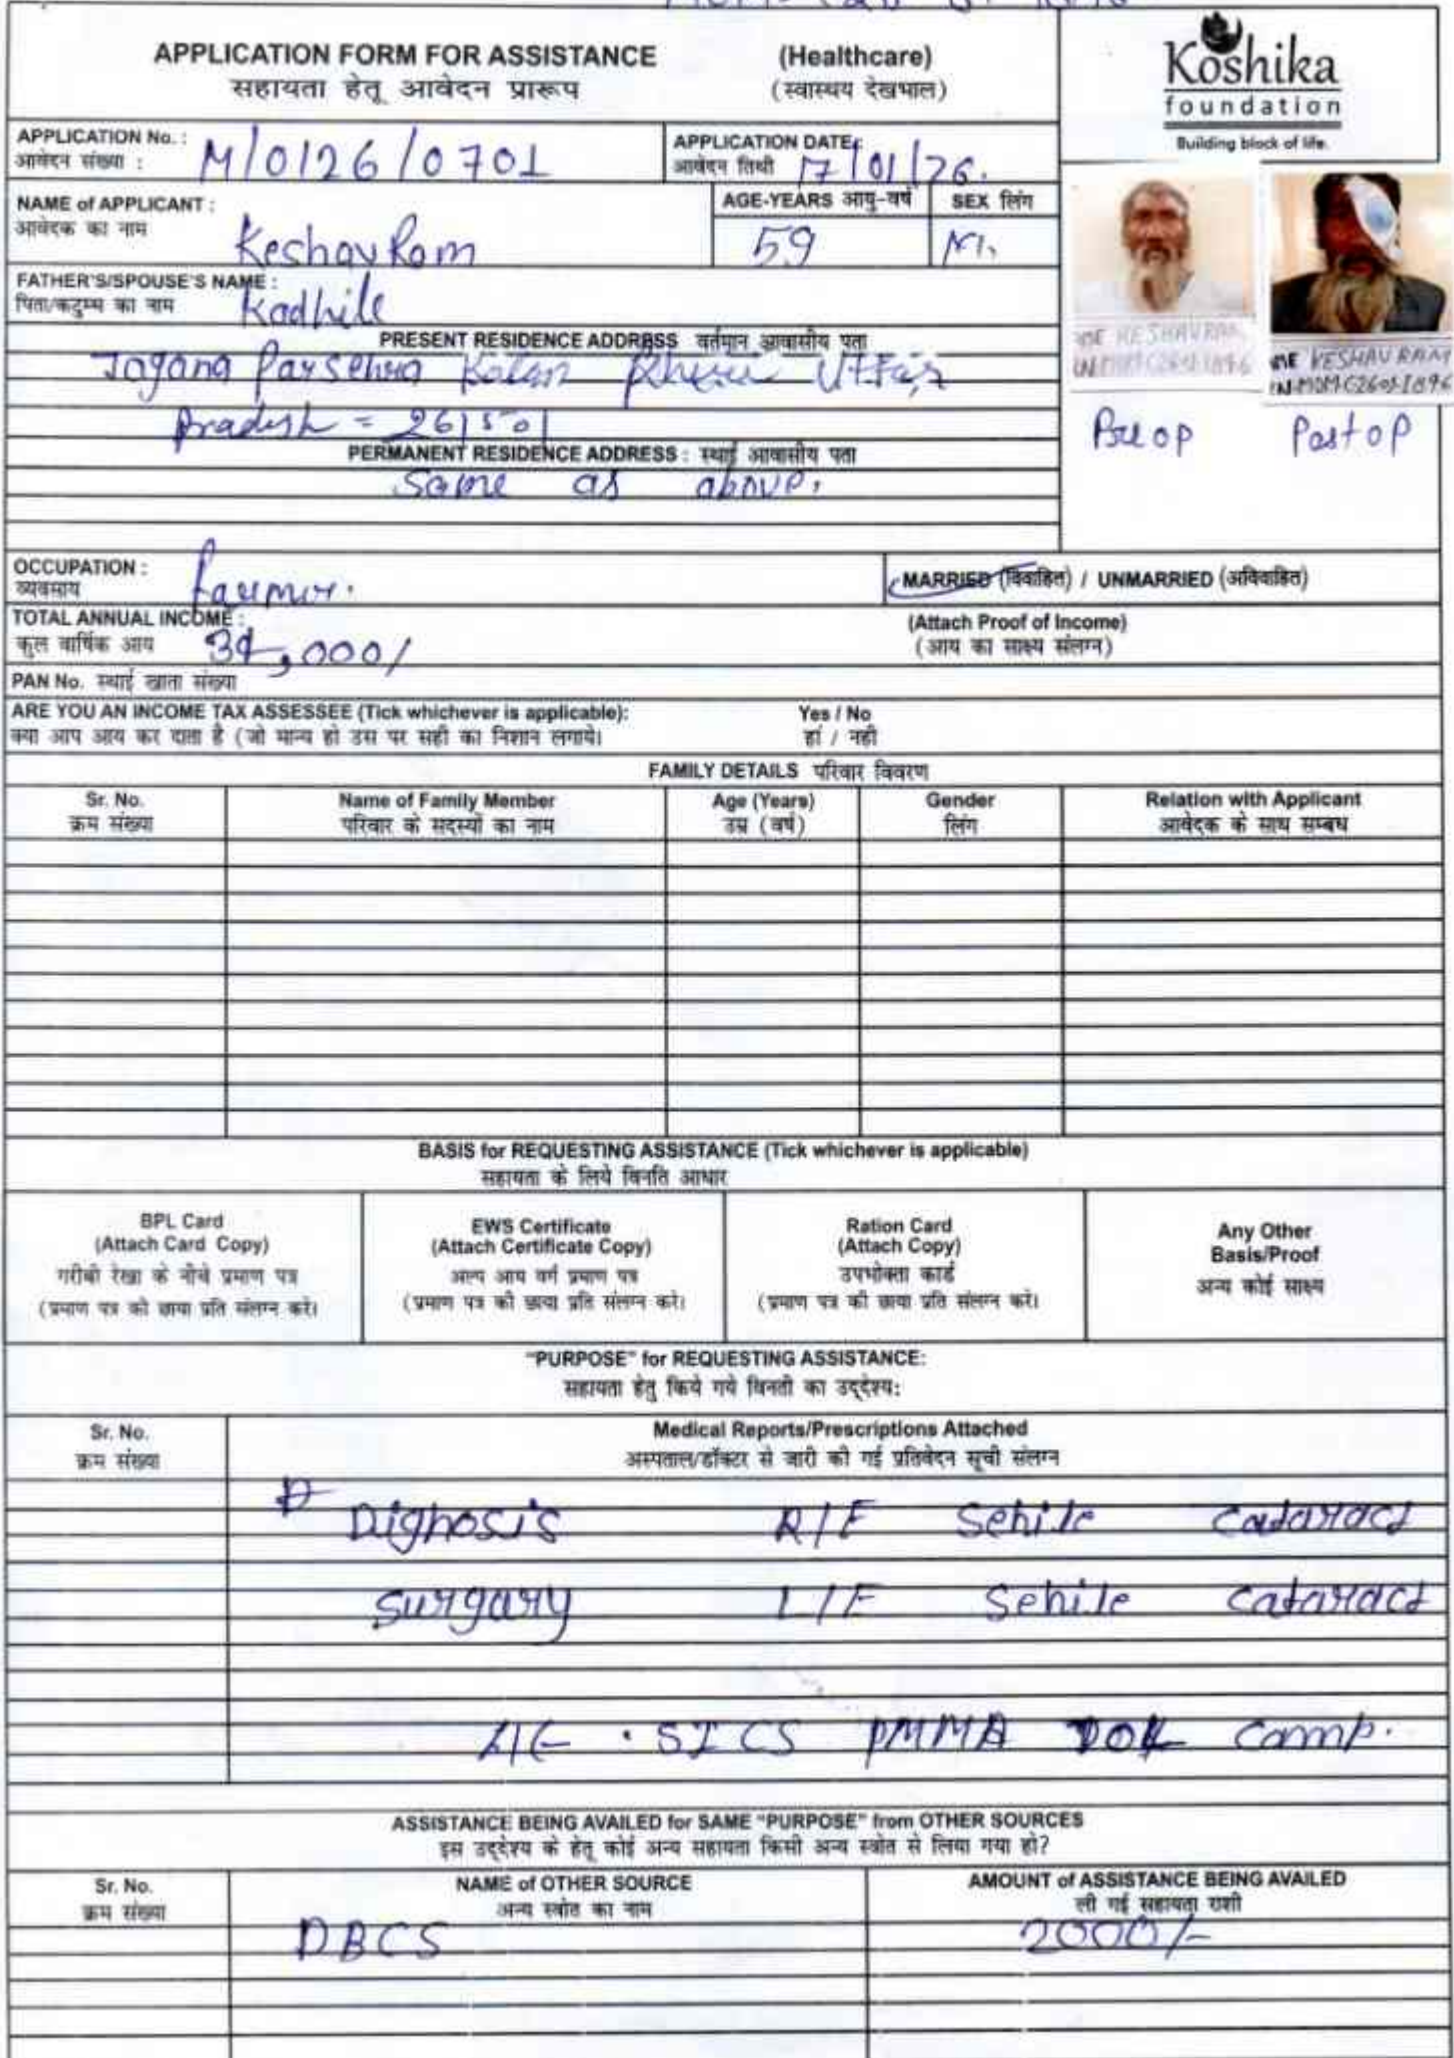 APPLICATION FORM FOR ASSISTANCE (Healthcare)
सहायता हेतू आवेदन प्रारूप (स्वास्थय देखभाल)
Koshika
foundation
Building block of life.
APPLICATION No. : M/0126/0701
आवेदन संख्या :
APPLICATION DATE: 17/01/26.
आवेदन तिथी
NAME of APPLICANT : Keshav Ram
आवेदक का नाम
AGE-YEARS आयु-वर्ष SEX लिंग
59 M.
FATHER'S/SPOUSE'S NAME : Kadhile
पिता/कटुम्ब का नाम
PRESENT RESIDENCE ADDRESS वर्तमान आवासीय पता
Jogana Parsehra Kalan Kheri Uttar
Pradesh = 261501
PERMANENT RESIDENCE ADDRESS : स्थाई आवासीय पता
Same as above.
KESHAVRAM
ME KESHAV RAM
Pre op Post op
OCCUPATION : Farmer.
व्यवसाय
MARRIED (विवाहित) / UNMARRIED (अविवाहित)
TOTAL ANNUAL INCOME : 34,000/
कुल वार्षिक आय
(Attach Proof of Income)
(आय का साक्ष्य संलग्न)
PAN No. स्थाई खाता संख्या
ARE YOU AN INCOME TAX ASSESSEE (Tick whichever is applicable): Yes / No
क्या आप आय कर दाता है (जो मान्य हो उस पर सही का निशान लगाये। हां / नही
FAMILY DETAILS परिवार विवरण
Sr. No. Name of Family Member Age (Years) Gender Relation with Applicant
क्रम संख्या परिवार के सदस्यों का नाम उम्र (वर्ष) लिंग आवेदक के साथ सम्बध
BASIS for REQUESTING ASSISTANCE (Tick whichever is applicable)
सहायता के लिये विनति आधार
BPL Card
(Attach Card Copy)
गरीबी रेखा के नीचे प्रमाण पत्र
(प्रमाण पत्र की छाया प्रति संलग्न करे।
EWS Certificate
(Attach Certificate Copy)
अल्प आय वर्ग प्रमाण पत्र
(प्रमाण पत्र की छाया प्रति संलग्न करे।
Ration Card
(Attach Copy)
उपभोक्ता कार्ड
(प्रमाण पत्र की छाया प्रति संलग्न करे।
Any Other
Basis/Proof
अन्य कोई साक्ष्य
"PURPOSE" for REQUESTING ASSISTANCE:
सहायता हेतु किये गये विनती का उद्देश्य:
Sr. No. Medical Reports/Prescriptions Attached
क्रम संख्या अस्पताल/डॉक्टर से जारी की गई प्रतिवेदन सूची संलग्न
Dignosis R/E Senile cataract
Surgary L/E Senile cataract
L/E . SICS PMMA camp.
ASSISTANCE BEING AVAILED for SAME "PURPOSE" from OTHER SOURCES
इस उद्देश्य के हेतू कोई अन्य सहायता किसी अन्य स्त्रोत से लिया गया हो?
Sr. No. NAME of OTHER SOURCE AMOUNT of ASSISTANCE BEING AVAILED
क्रम संख्या अन्य स्त्रोत का नाम ली गई सहायता राशी
DBCS 2000/-